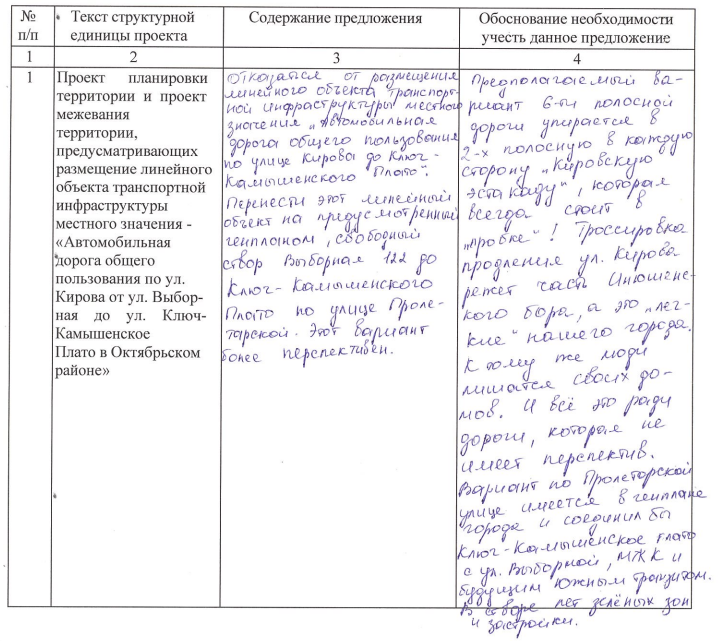 № п/п
Текст структурной
единицы проекта
Содержание предложения
Обоснование необходимости
учесть данное предложение
1
2
3
4
1
Проект планировки
территории и проект
межевания
территории,
предусматривающих
размещение линейного
объекта транспортной
инфраструктуры
местного значения -
«Автомобильная
дорога общего
пользования по ул.
Кирова от ул. Выбор-
ная до ул. Ключ-
Камышенское
Плато в Октябрьском
районе»
Отказаться от размещения
линейного объекта транспорт-
ной инфраструктуры местного
значения „Автомобильная
дорога общего пользования
по улице Кирова до Ключ-
Камышенского Плато".
Перенести этот линейный
объект на предусмотренный
генпланом, свободный
створ Выборная 122 до
Ключ-Камышенского
Плато по улице Проле-
тарской. Этот вариант
более перспективен.
Предполагаемый ва-
риант 6-ти полосной
дороги упирается в
2-х полосную в каждую
сторону „Кировскую
эстакаду", которая
всегда стоит в
„пробке"! Трассировка
продления ул. Кирова
режет часть Инюшенс-
кого бора, а это „лег-
кие" нашего города.
К тому же люди
лишатся своих до-
мов. И всё это ради
дороги, которая не
имеет перспектив.
Вариант по Пролетарской
улице имеется в генплане
города и соединил бы
Ключ-Камышенское плато
с ул. Выборной, МЖК и
будущим Южным транзитом.
В створе нет зелёных зон
и застройки.